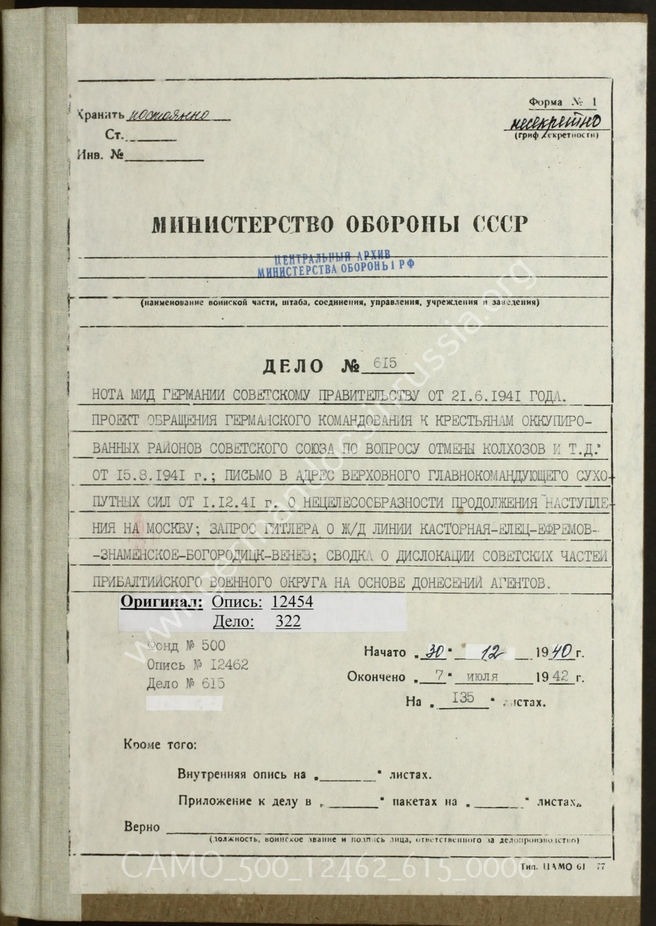 Хранить постоянно
Форма № 1
Ст.
несекретно
(гриф секретности)
Инв. №
МИНИСТЕРСТВО ОБОРОНЫ СССР
ЦЕНТРАЛЬНЫЙ АРХИВ
МИНИСТЕРСТВА ОБОРОНЫ РФ
(наименование воинской части, штаба, соединения, управления, учреждения и заведения)
ДЕЛО № 615
НОТА МИД ГЕРМАНИИ СОВЕТСКОМУ ПРАВИТЕЛЬСТВУ ОТ 21.6.1941 ГОДА.
ПРОЕКТ ОБРАЩЕНИЯ ГЕРМАНСКОГО КОМАНДОВАНИЯ К КРЕСТЬЯНАМ ОККУПИРО-
ВАННЫХ РАЙОНОВ СОВЕТСКОГО СОЮЗА ПО ВОПРОСУ ОТМЕНЫ КОЛХОЗОВ И Т.Д.
ОТ 15.8.1941 г.; ПИСЬМО В АДРЕС ВЕРХОВНОГО ГЛАВНОКОМАНДУЮЩЕГО СУХО-
ПУТНЫХ СИЛ ОТ 1.12.41 г. О НЕЦЕЛЕСООБРАЗНОСТИ ПРОДОЛЖЕНИЯ НАСТУПЛЕ-
НИЯ НА МОСКВУ; ЗАПРОС ГИТЛЕРА О Ж/Д ЛИНИИ КАСТОРНАЯ-ЕЛЕЦ-ЕФРЕМОВ-
-ЗНАМЕНСКОЕ-БОГОРОДИЦК-ВЕНЕВ; СВОДКА О ДИСЛОКАЦИИ СОВЕТСКИХ ЧАСТЕЙ
ПРИБАЛТИЙСКОГО ВОЕННОГО ОКРУГА НА ОСНОВЕ ДОНЕСЕНИЙ АГЕНТОВ.
Оригинал: Опись: 12454
Дело: 322
Фонд № 500
Опись № 12462
Дело № 615
Начато „30" 12 1940 г.
Окончено „7" июля 1942 г.
На „135" листах.
Кроме того:
Внутренняя опись на „ " листах.
Приложение к делу в „ " пакетах на „ " листах.
Верно
(должность, воинское звание и подпись лица, ответственного за делопроизводство)
Тип. ЦАМО 61 77
CAMO_500_12462_615_0000
www.germandocsinrussia.org